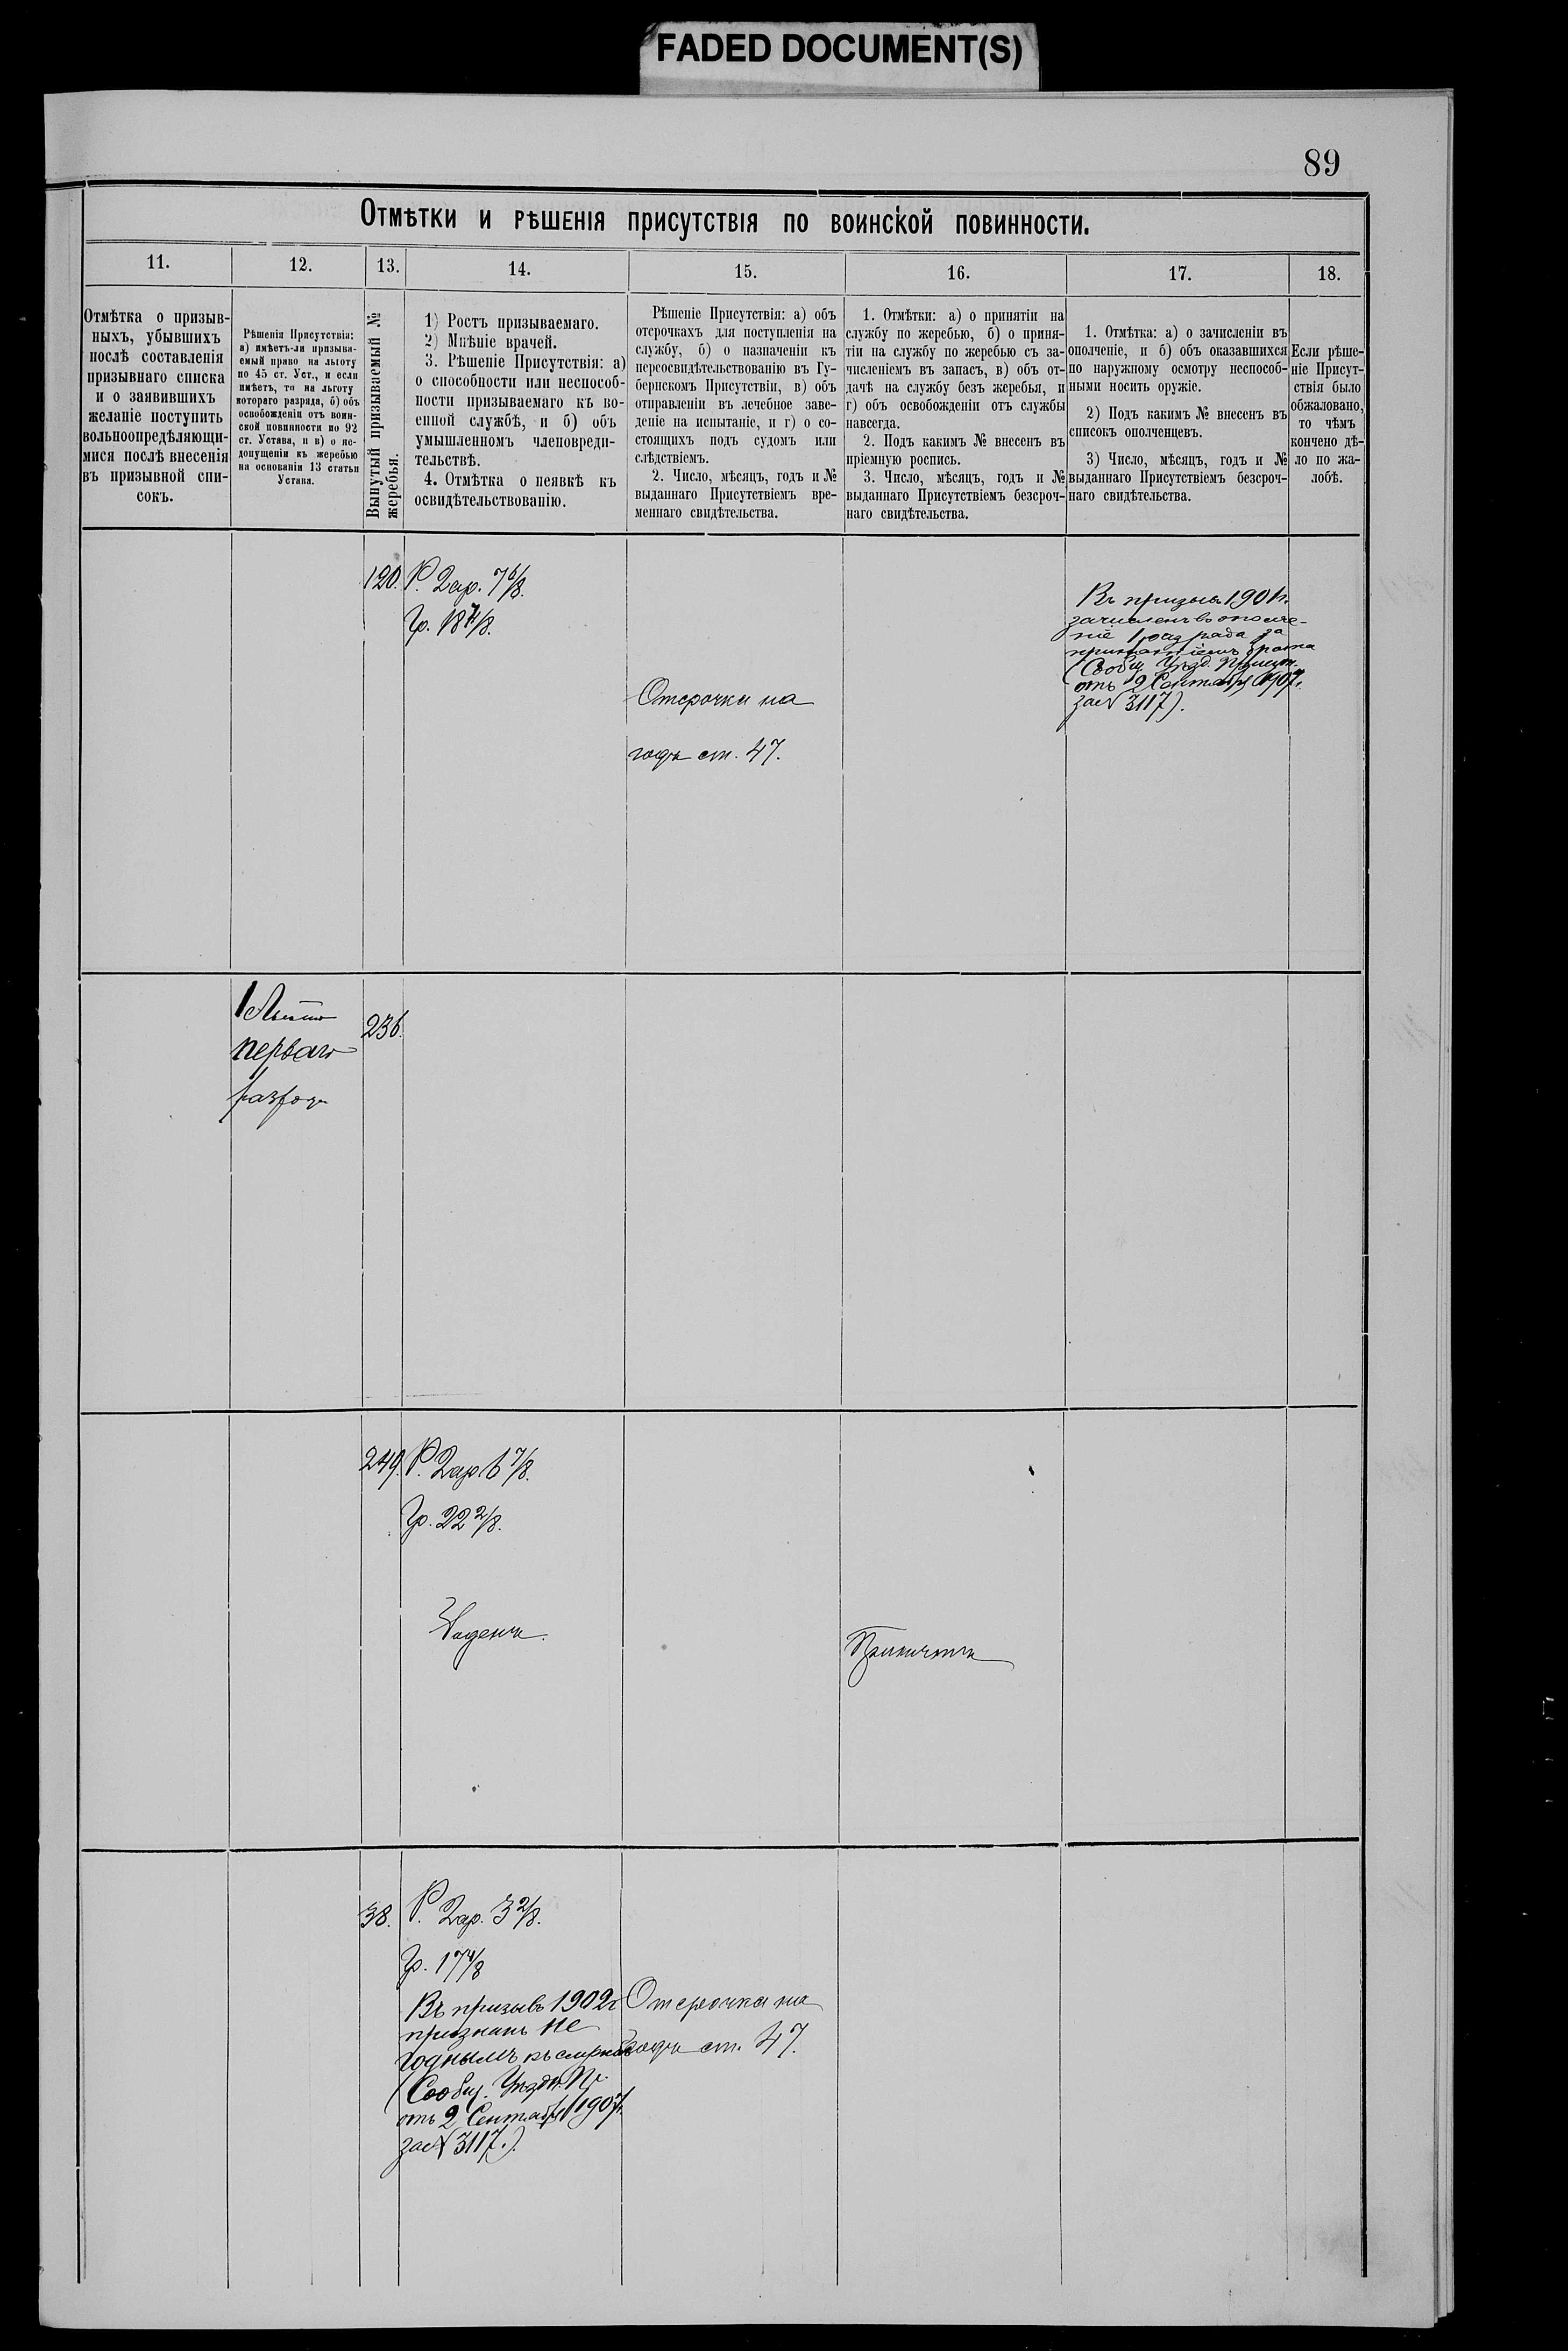 FADED DOCUMENT(S)
89
Отмѣтки и рѣшенія присутствія по воинской повинности.
11.
12.
13.
14.
15.
16.
17.
18.
Отмѣтка о призыв-
ныхъ, убывшихъ
послѣ составленія
призывнаго списка
и о заявившихъ
желаніе поступить
вольноопредѣляющи-
мися послѣ внесенія
въ призывной спи-
сокъ.
Рѣшенія Присутствія:
а) имѣетъ-ли призыва-
емый право на льготу
по 45 ст. Уст., и если
имѣетъ, то на льготу
котораго разряда, б) объ
освобожденіи отъ воин-
ской повинности по 92
ст. Устава, и в) о не-
допущеніи къ жеребью
на основаніи 13 статьи
Устава.
Вынутый призываемый №
жеребья.
1) Ростъ призываемаго.
2) Мнѣніе врачей.
3. Рѣшеніе Присутствія: а)
о способности или неспособ-
ности призываемаго къ во-
енной службѣ, и б) объ
умышленномъ членовреди-
тельствѣ.
4. Отмѣтка о неявкѣ къ
освидѣтельствованію.
Рѣшеніе Присутствія: а) объ
отсрочкахъ для поступленія на
службу, б) о назначеніи къ
переосвидѣтельствованію въ Гу-
бернскомъ Присутствіи, в) объ
отправленіи въ лечебное заве-
деніе на испытаніе, и г) о со-
стоящихъ подъ судомъ или
слѣдствіемъ.
2. Число, мѣсяцъ, годъ и №
выданнаго Присутствіемъ вре-
меннаго свидѣтельства.
1. Отмѣтки: а) о принятіи на
службу по жеребью, б) о приня-
тіи на службу по жеребью съ за-
численіемъ въ запасъ, в) объ от-
дачѣ на службу безъ жеребья, и
г) объ освобожденіи отъ службы
навсегда.
2. Подъ какимъ № внесенъ въ
пріемную роспись.
3. Число, мѣсяцъ, годъ и №
выданнаго Присутствіемъ безсроч-
наго свидѣтельства.
1. Отмѣтка: а) о зачисленіи въ
ополченіе, и б) объ оказавшихся
по наружному осмотру неспособ-
ными носить оружіе.
2) Подъ какимъ № внесенъ въ
списокъ ополченцевъ.
3) Число, мѣсяцъ, годъ и №
выданнаго Присутствіемъ безсроч-
наго свидѣтельства.
Если рѣше-
ніе Присут-
ствія было
обжаловано,
то чѣмъ
кончено дѣ-
ло по жа-
лобѣ.
120.
Р. 2 ар. 7 6/8.
Гр. 18 4/8.
Отсрочка на
годъ ст. 47.
Въ призывъ 190
зачисленъ въ ополче-
ніе 1 разряда за
брата
(Сообщ. Уѣзд. Присут.
отъ 2 Сентября 1904 г.
за № 3117).
Льгота
перваго
разряд
236.
249.
Р. 2 ар 6 7/8.
Гр. 22 2/8.
Годенъ.
Принятъ
38.
Р. 2 ар. 3 2/8.
Гр. 17 4/8
Въ призывъ 1902 г.
признанъ не
годнымъ къ службѣ
(Сообщ. Уѣздн. Пр.
отъ 2 Сентября 1904 г.
за № 3117.)
Отсрочка на
годъ ст. 47.